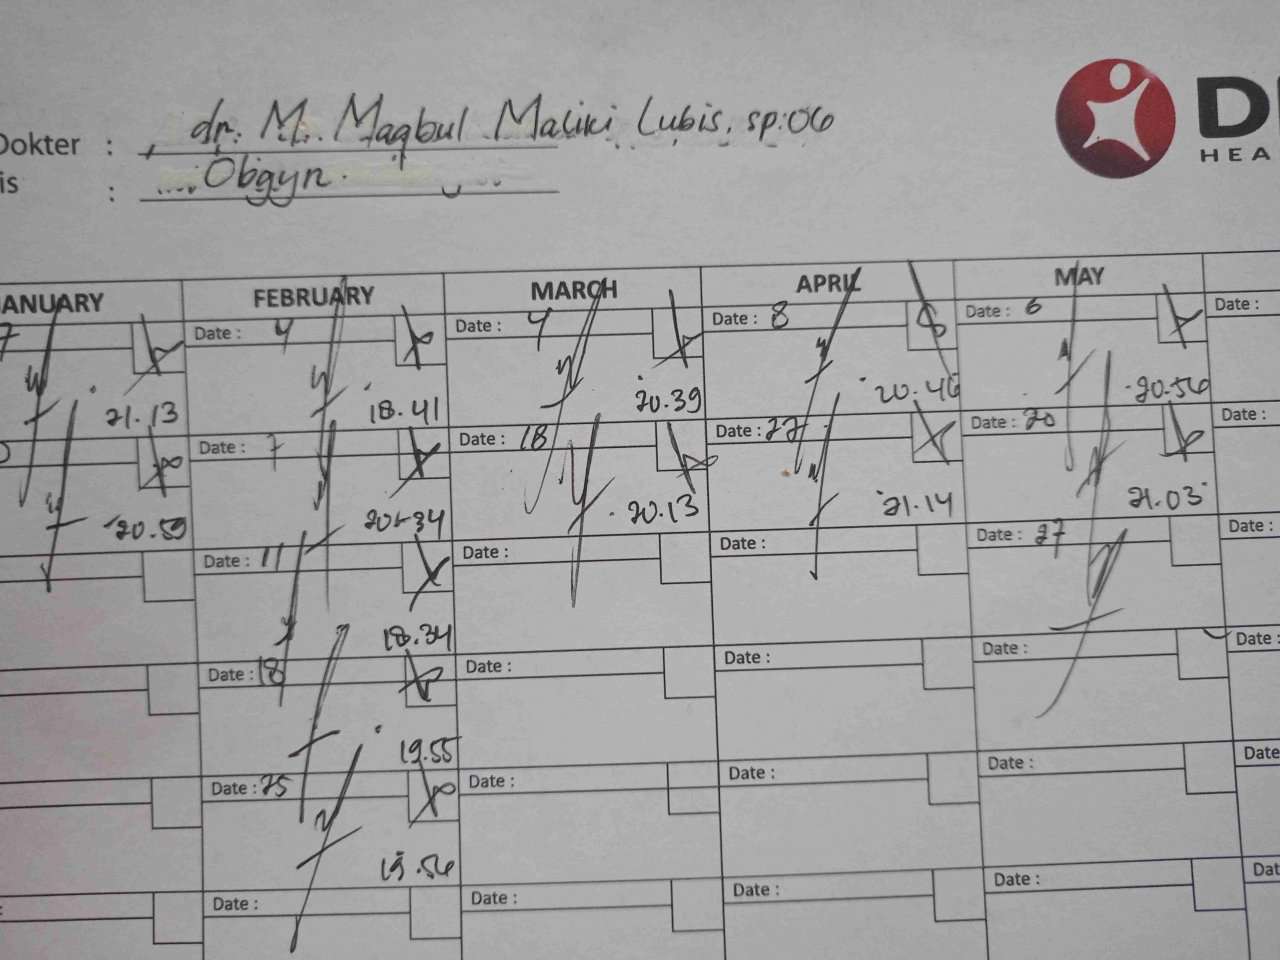 Dokter : dr. M. Maqbul Maliki Lubis, sp.OG
is : Obgyn.
D
HEA
ANUARY FEBRUARY MARCH APRIL MAY
7 Date : 4 Date : 4 Date : 8 Date : 6 Date :
21.13 18.41 20.39 20.46 20.56
Date : 7 Date : 18 Date : 22 Date : 20 Date :
20.59 20.34 20.13 21.14 21.03
Date : 11 Date : Date : Date : 27 Date :
18.34
Date : 18 Date : Date : Date : Date :
19.55
Date : 25 Date : Date : Date : Date
19.56
Date : Date : Date : Date : Dat